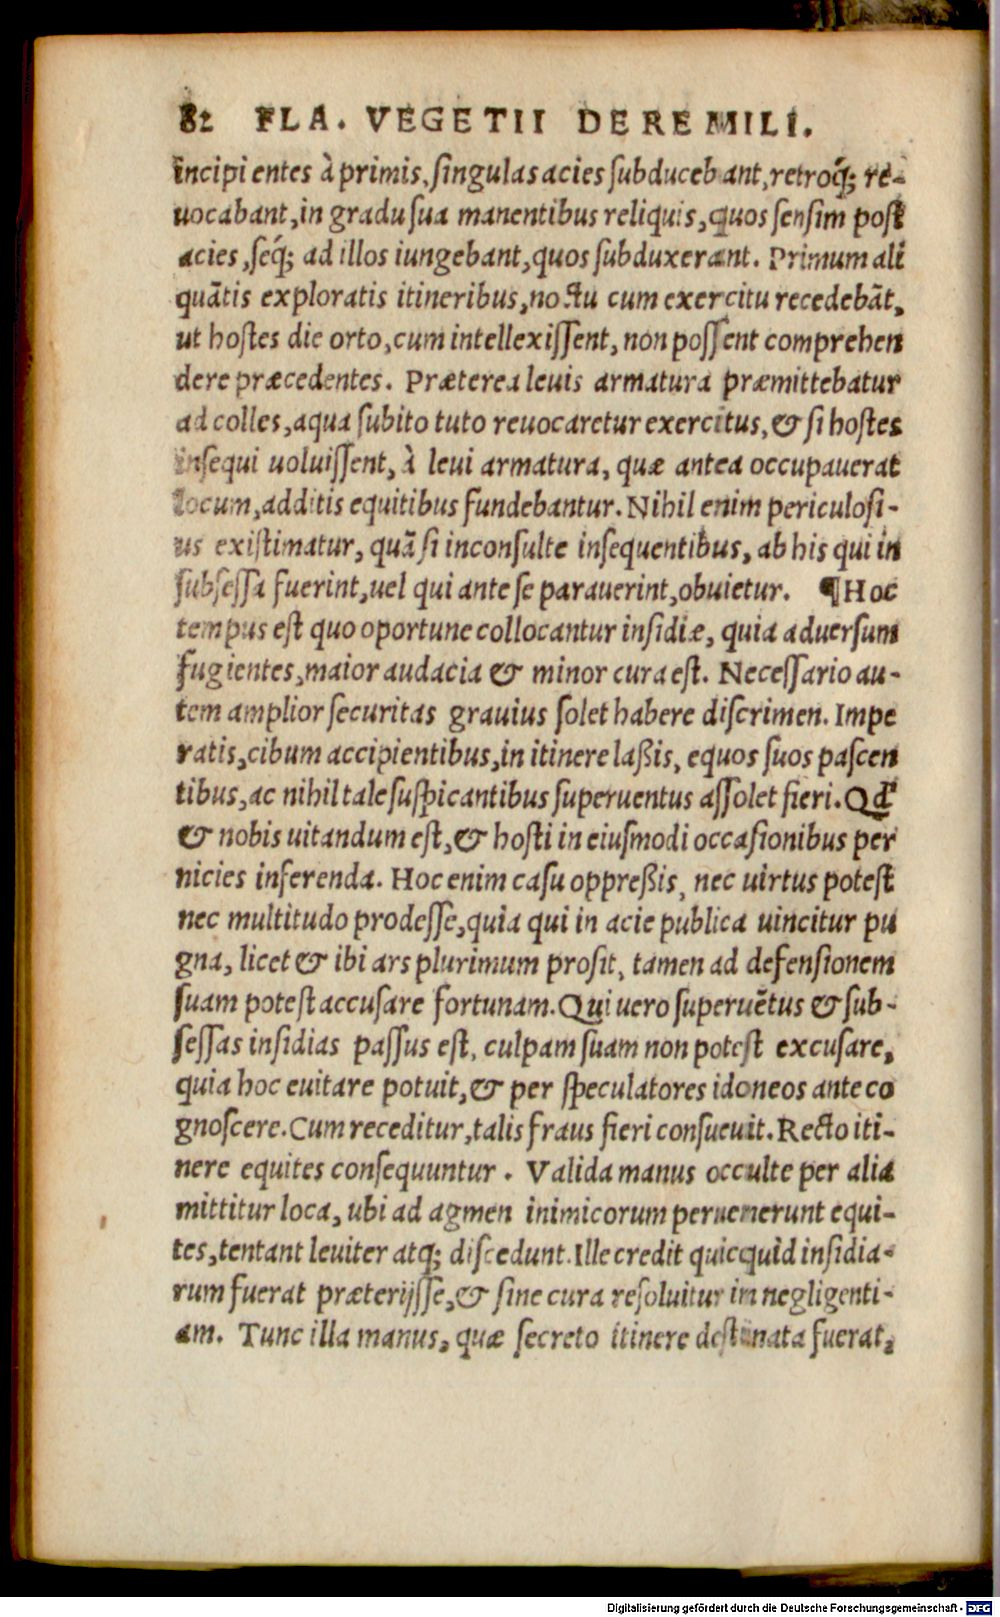 82 FLA. VEGETII DE RE MILI.
incipientes à primis, ſingulas acies ſubducebant, retroq́; re-
uocabant, in gradu ſua manentibus reliquis, quos ſenſim poſt
acies, ſeq́; ad illos iungebant, quos ſubduxerant. Primum ali
quãtis exploratis itineribus, noctu cum exercitu recedebãt,
ut hoſtes die orto, cum intellexiſſent, non poſſent comprehen
dere præcedentes. Præterea leuis armatura præmittebatur
ad colles, aqua ſubito tuto reuocaretur exercitus, & ſi hoſtes
inſequi uoluiſſent, à leui armatura, quæ antea occupauerat
locum, additis equitibus fundebantur. Nihil enim periculoſi-
us exiſtimatur, quã ſi inconſulte inſequentibus, ab his qui in
ſubſeſſa fuerint, uel qui ante ſe parauerint, obuietur. ¶ Hoc
tempus eſt quo oportune collocantur inſidiæ, quia aduerſum
fugientes, maior audacia & minor cura eſt. Neceſſario au-
tem amplior ſecuritas grauius ſolet habere diſcrimen. Impe
ratis, cibum accipientibus, in itinere laßis, equos ſuos paſcen
tibus, ac nihil tale ſuſpicantibus ſuperuentus aſſolet fieri. Qd'
& nobis uitandum eſt, & hoſti in eiuſmodi occaſionibus per
nicies inferenda. Hoc enim caſu oppreßis, nec uirtus poteſt
nec multitudo prodeſſe, quia qui in acie publica uincitur pu
gna, licet & ibi ars plurimum proſit, tamen ad defenſionem
ſuam poteſt accuſare fortunam. Qui uero ſuperuẽtus & ſub-
ſeſſas inſidias paſſus eſt, culpam ſuam non poteſt excuſare,
quia hoc euitare potuit, & per ſpeculatores idoneos ante co
gnoſcere. Cum receditur, talis fraus fieri conſueuit. Recto iti-
nere equites conſequuntur. Valida manus occulte per alia
mittitur loca, ubi ad agmen inimicorum peruenerunt equi-
tes, tentant leuiter atq; diſcedunt. Ille credit quicquid inſidia-
rum fuerat præterijſſe, & ſine cura reſoluitur in negligenti-
am. Tunc illa manus, quæ ſecreto itinere deſtinata fuerat,
Digitalisierung gefördert durch die Deutsche Forschungsgemeinschaft - DFG